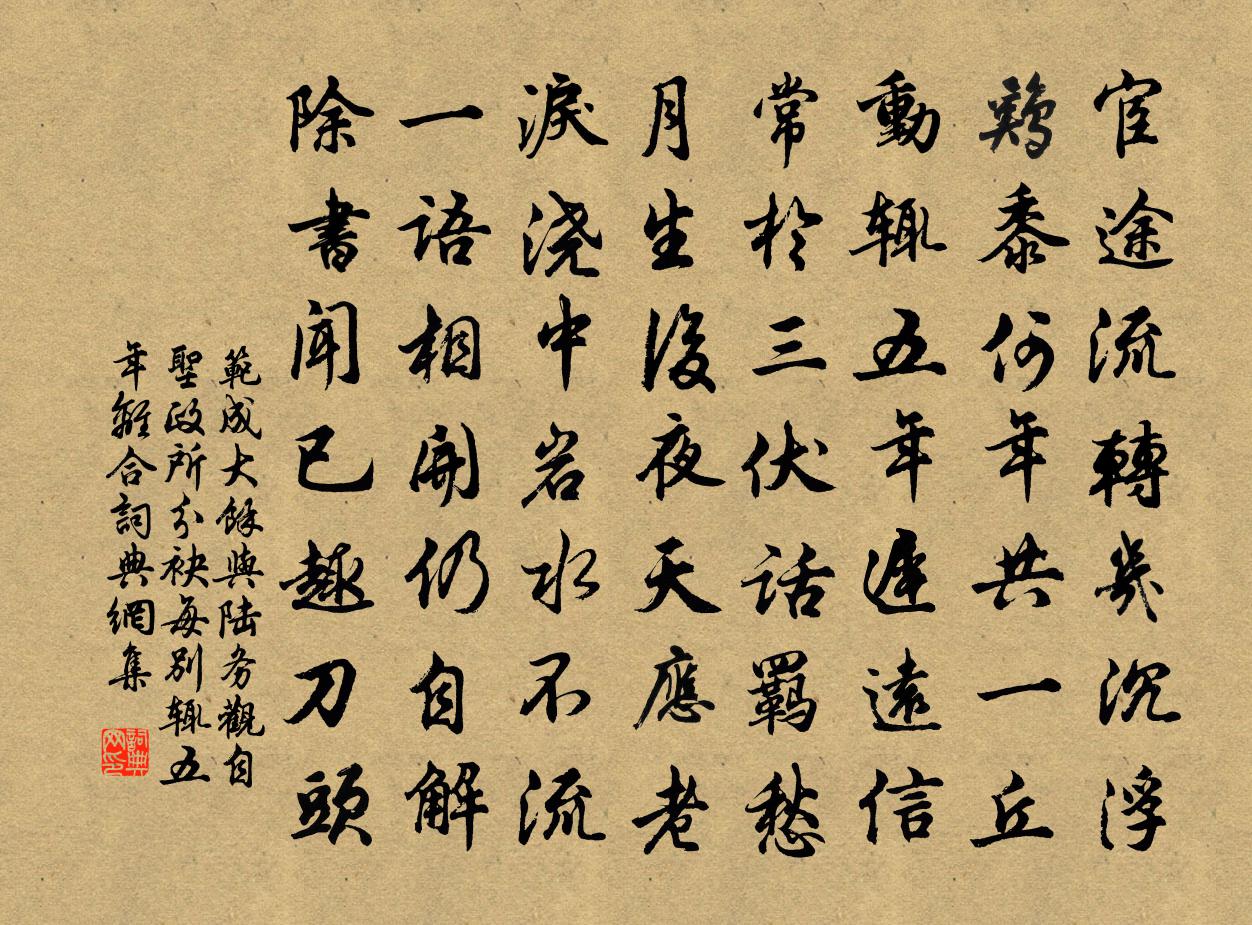 宦途流轉幾沉浮
鷄黍何年共一丘
動輒五年遲遠信
常於三伏話羈愁
月生後夜天應老
淚澆中岩水不流
一語相開仍自解
除書聞已趣刀頭
範成大餘與陆务觀自
聖政所分袂每別輒五
年離合詞典網集
詞典网印